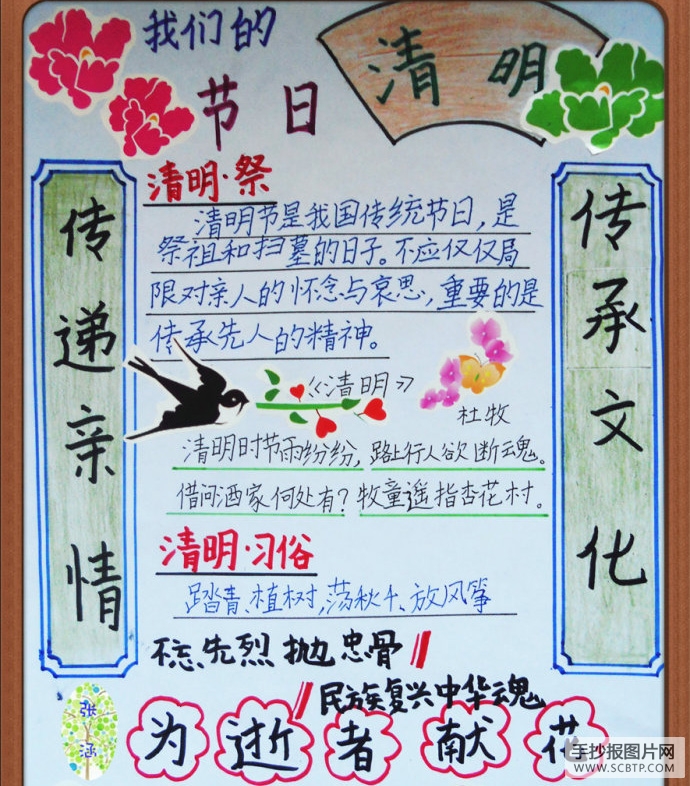 我们的
节日
清明
传递亲情
传承文化
清明·祭
清明节是我国传统节日，是
祭祖和扫墓的日子。不应仅仅局
限对亲人的怀念与哀思，重要的是
传承先人的精神。
《清明》
杜牧
清明时节雨纷纷，路上行人欲断魂。
借问酒家何处有？牧童遥指杏花村。
清明·习俗
踏青、植树，荡秋千、放风筝
不忘先烈抛忠骨
民族复兴中华魂
张涵
为逝者献花
手抄报图片网
WWW.SCBTP.COM